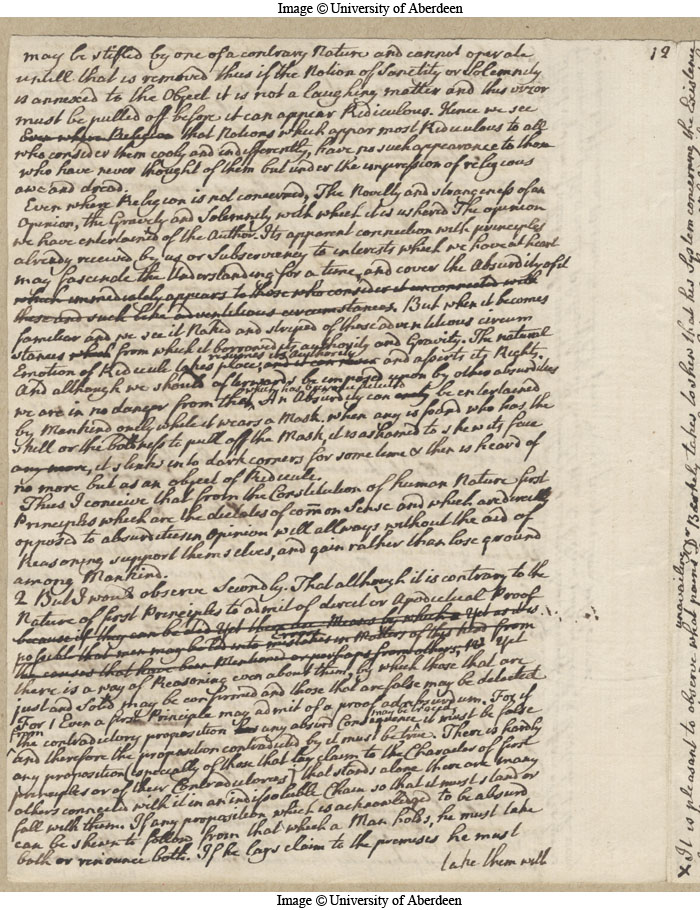 Image © University of Aberdeen
12
may be stifled by one of a contrary Nature and cannot operate
untill that is removed thus if the Notion of Sanctity or Solemnity
is annexed to the Object it is not a laughing matter and this vizor
must be pulled off before it can appear Ridiculous. Hence we see
Even where Religion that Notions which appear most Ridiculous to all
who consider them cooly and indifferently, have no such appearance to those
who have never thought of them but under the impression of religious
awe and dread.
Even where Religion is not concerned, The Novelty and strangeness of an
Opinion, the Gravity and Solemnity with which it is ushered The opinion
we have entertained of the Author, Its apparent connection with principles
already received by us or Subserviency to interests which we have at heart
may fascinate the Understanding for a time, and cover the Absurdity of it
which immediately appears to those who consider it unconnected with
these and such like adventitious circumstances. But when it becomes
familiar and we see it Naked and striped of those adventitious circum
stances which from which it borrowed its authority and Gravity. The natural
Emotion of Ridicule takes place, resumes its Authority and asserts its Right.
And although we should afterwards be imposed upon by other absurdities
we are in no danger from that. An Absurdity can only be entertained
by Mankind onely while it wears a Mask. when any is found who has the
Skill or the boldness to pull off the Mask, it is ashamed to shew its face
any more, it slinks into dark corners for some time & then is heard of
no more but as an object of Ridicule.
Thus I conceive that from the Constitution of human Nature first
Principles which are the dictates of common Sense and which are directly
opposed to absurdities in Opinion will allways without the aid of
Reasoning support themselves, and gain rather than lose ground
among Mankind.
2 But I would observe Secondly. That although it is contrary to the
Nature of first Principles to admit of direct or Apodictical Proof
because if they can be Yet there are Means by which Yet as it is
possible that men may be led into mistakes in Matters of this kind from
the causes that have been Mentioned or perhaps from others, Yet
there is a way of Reasoning even about them, by which those that are
just and Solid may be confirmed and those that are false may be detected
For 1 Even a first Principle may admit of a proof ad absurdum. For if
from the contradictory proposition any absurd Consequence may be traced it must be false
and therefore the proposition contradicted by it must be true. There is hardly
any proposition (especially of those that lay claim to the Character of first
principles or of their Contradictories) that stands alone there are many
others connected with it in an indissoluble Chain so that it must stand or
fall with them. If any proposition which is acknowledged to be absurd
can be shewn to follow from that which a Man holds, he must take
both or renounce both. If he lays claim to the premises he must
take them with
x It is pleasant to observe what pains Dr Berkely takes to shew that his System concerning the Existence
unavailing
Image © University of Aberdeen